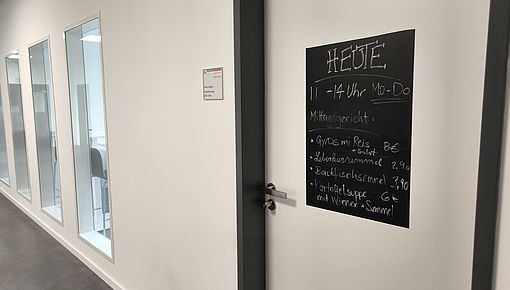 HEUTE
11 -14 Uhr Mo-Do
Mittagsgericht:
• Gyros mi Reis 8€
+ Salat
• Leberkässemmel 2,90
• Backfischsemmel 3,90
• Kartoffelsuppe 6€
mit Wiener + Semmel